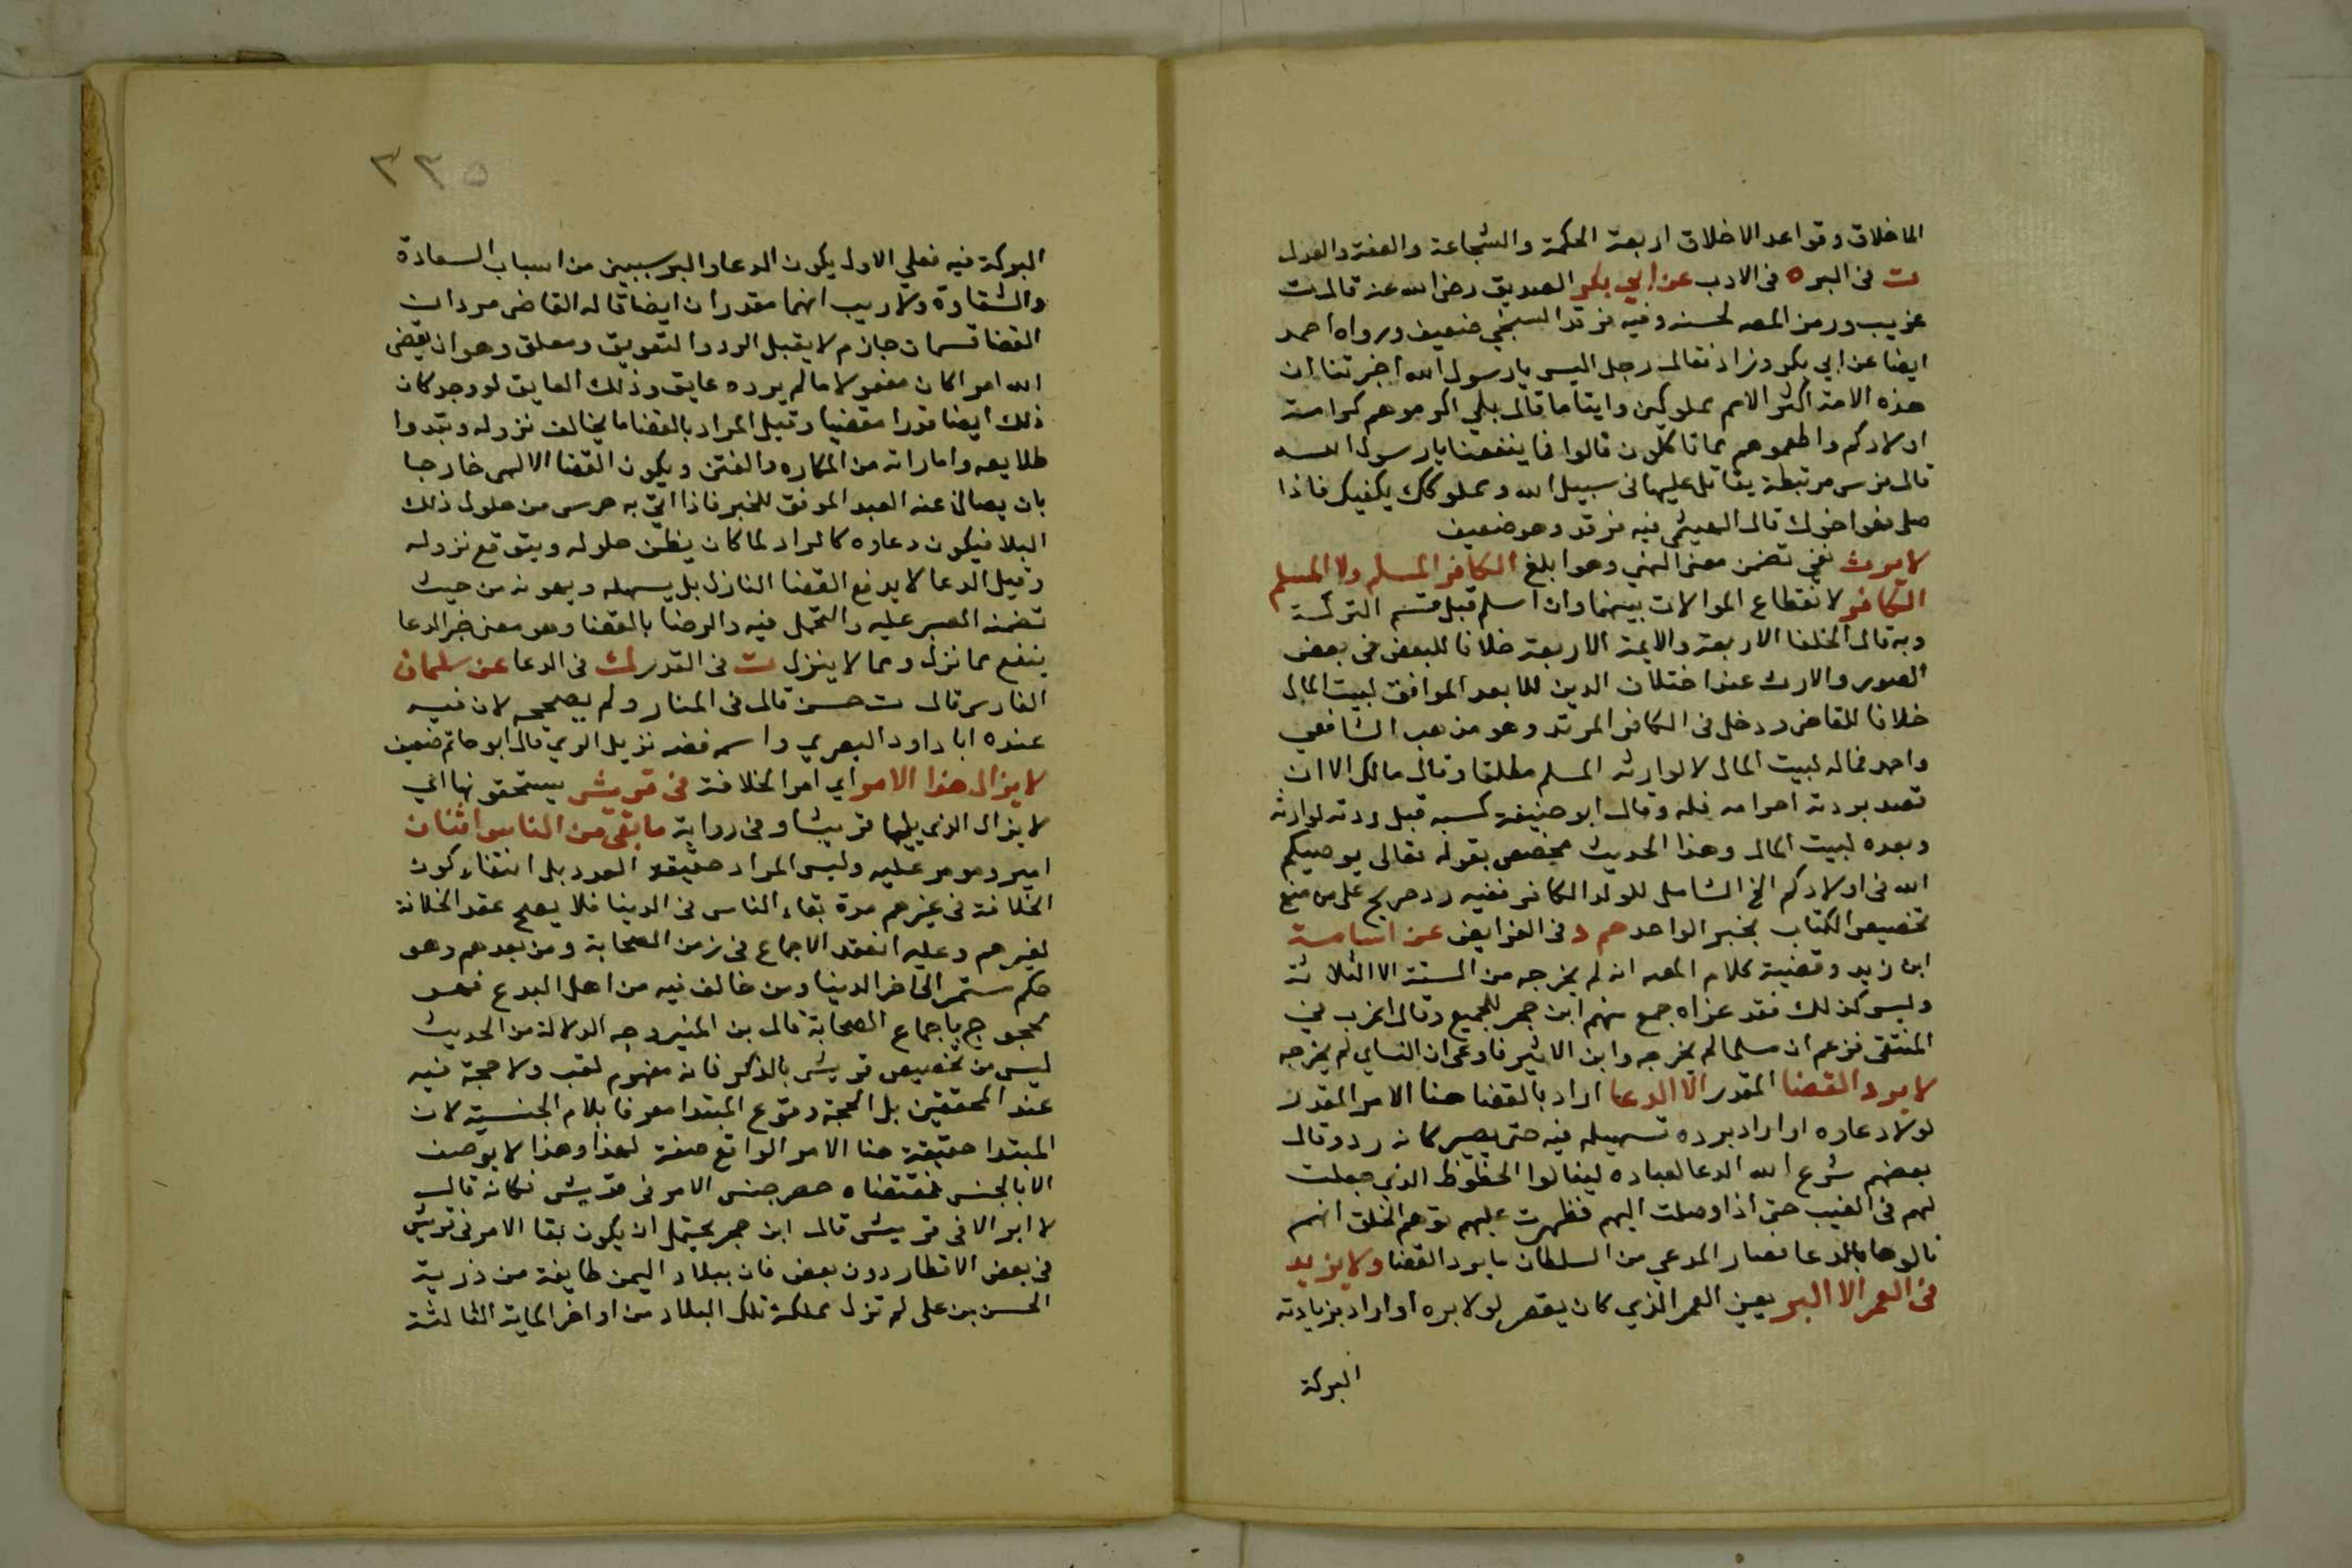 الاخلاق وقواعد الاخلاق اربعة الحكمة والشجاعة والعفة والعدل
ت فى البر ه فى الادب عن ابي بكر الصديق رضى الله عنه قال ت
غريب ورمز المصه لحسنه وفيه فرقد السبخي ضعيف ورواه احمد
ايضا عن ابي بكر وزاد فقال رجل اليس يا رسول الله اخبرتنا ان
هذه الامة اكثر الامم مملوكين وايتاما قال بلي اكرموهم كرامة
اولادكم واطعموهم مما تاكلون قالوا فما ينفعنا يا رسول الله
قال فرس مرتبطة يقاتل عليها فى سبيل الله ومملوكك يكفيك فاذا
صلى فهو اخوك قال الهيثمى فيه فرقد وهو ضعيف
لا يرث نفى تضمن معنى النهي وهو ابلغ الكافر المسلم ولا المسلم
الكافر لانقطاع الموالات بينهما وان اسلم قبل قسم التركة
وبه قال الخلفا الاربعة والايمة الاربعة خلافا للبعض فى بعض
الصور والارث عند اختلاف الدين للابعد الموافق لبيت المال
خلافا للقاضى ودخل فى الكافر المرتد وهو مذهب الشافعي
واحمد فماله لبيت المال لا لوارثه المسلم مطلقا وقال مالك الا ان
قصد بردته احرامه فله وقال ابو حنيفة كسبه قبل ردته لوارثه
وبعده لبيت المال وهذا الحديث مخصص بقوله تعالى يوصيكم
الله فى اولادكم الخ الشامل للولد الكافر ففيه رد صريح على من منع
تخصيص الكتاب بخبر الواحد حم د فى الفرايض عن اسامة
ابن زيد وقضية كلام المصه انه لم يخرجه من الستة الا الثلاثة
وليس كذلك فقد عزاه جمع منهم ابن حجر للجميع وقال اغرب فى
المنتقى فزعم ان مسلما لم يخرجه وابن الاثير فادعى ان النساي لم يخرجه
لا يرد القضا المقدر الا الدعا اراد بالقضا هنا الامر المقدر
لولا دعاوه او اراد برده تسهيله فيه حتى يصير كانه رد وقال
بعضهم شرع الله الدعا لعباده لينالوا الحظوظ الذي جعلت
لهم فى الغيب حتى اذا وصلت اليهم فظهرت عليهم توهم الخلق انهم
نالوها بالدعا فصار المدعي من السلطان ما يرد القضا ولا يزيد
فى العمر الا البر يعين العمر الذي كان يقصر لولا بره او اراد بزيادته
البركة
٣٣٥
البركة فيه فعلي الاول يكون الدعا والبر سببين من اسباب السعادة
والشقاوة ولا ريب انهما مقدران ايضا قاله القاضى مردان
القضا قسمان جازم لا يقبل الرد والتعويق ومعلق وهو ان يقضى
الله امرا كان مفعولا ما لم يرده عايق وذلك العايق لو وجد كان
ذلك ايضا قدرا مقضيا وقيل المراد بالقضا ما يخالف نزوله وتبدوا
طلايعه واماراته من المكاره والفتن ويكون القضا الالهى خارجا
بان يصان عنه العبد الموفق للخير فاذا اتى به حرس من حلول ذلك
البلا فيكون دعاوه كالراد لما كان يظن حلوله ويتوقع نزوله
وقيل الدعا لا يدفع القضا النازل بل يسهله ويهونه من حيث
تضمنه الصبر عليه والتحمل فيه والرضا بالقضا وهو معنى خبر الدعا
ينفع مما نزل ومما لا ينزل ت فى القدر ك فى الدعا عن سلمان
الفارسى قال ت حسن قال فى المنار ولم يصححه لان فيه
عنده ابا داود البصري واسمه فضه نزيل الري قال ابو حاتم ضعيف
لا يزال هذا الامر اي امر الخلافة فى قريش يستحقونها اي
لا يزال الذى يليها قريشا وفى رواية ما بقى من الناس اثنان
امير ومومر عليه وليس المراد حقيقة العدد بل انتفاء كون
الخلافة فى غيرهم مدة بقاء الناس فى الدنيا فلا يصح عقد الخلافة
لغيرهم وعليه انعقد الاجماع فى زمن الصحابة ومن بعدهم وهو
حكم مستمر الى اخر الدنيا ومن خالف فيه من اهل البدع فهو
محجوج باجماع الصحابة قال بن المنير وجه الدلالة من الحديث
ليس من تخصيص قريش بالذكر فانه مفهوم لقب ولا حجة فيه
عند المحققين بل الحجة وقوع المبتدا معرفا بلام الجنسية لان
المبتدا حقيقة هنا الامر الواقع صفة لهذا وهذا لا يوصف
الا بالجنس فمقتضاه حصر جنس الامر فى قريش فكانه قال
لا امر الا فى قريش قال ابن حجر يحتمل ان يكون بقا الامر فى قريش
فى بعض الاقطار دون بعض فان ببلاد اليمن طايفة من ذرية
الحسن بن على لم تزل مملكة تلك البلاد من اواخر الماية الثالثة